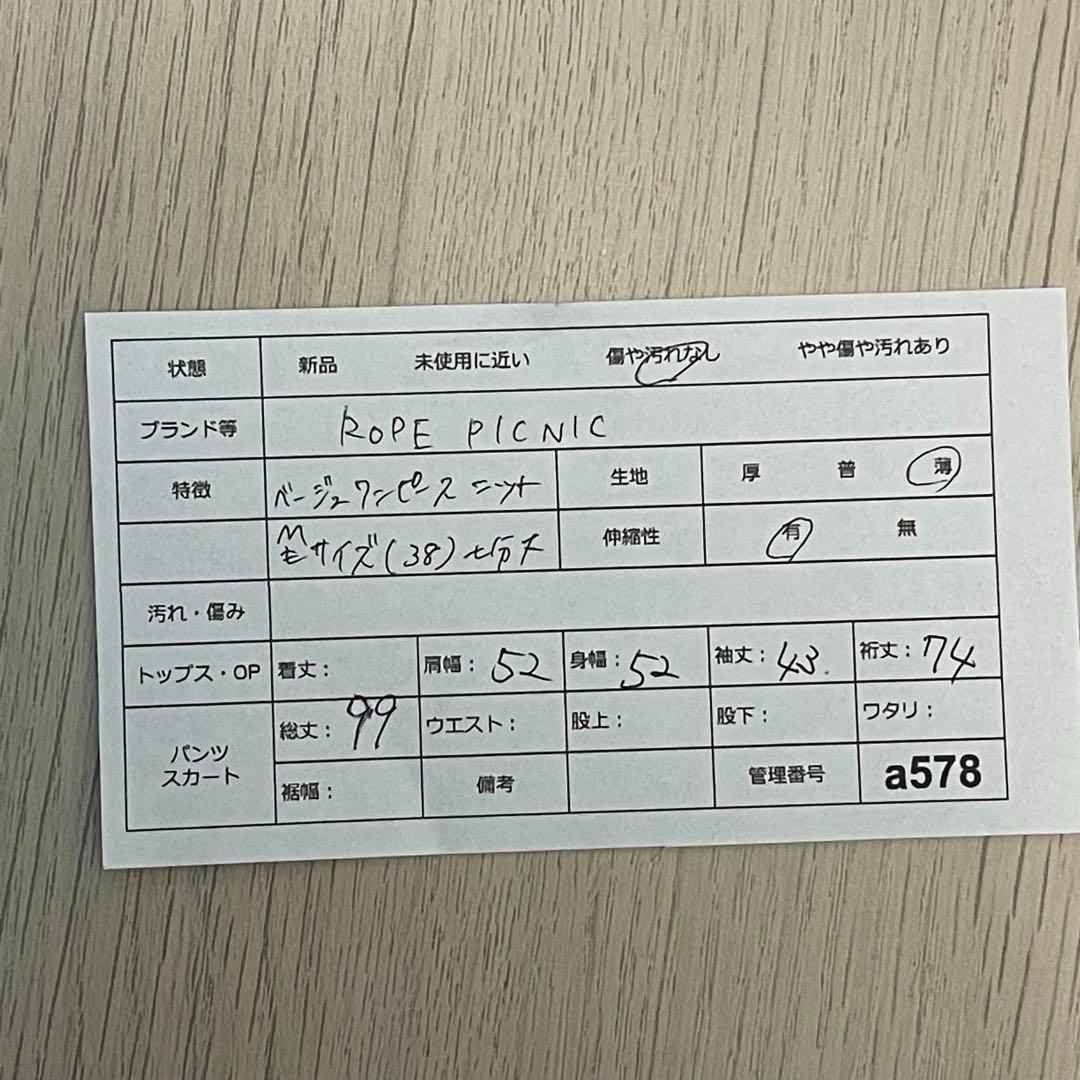 状態 新品 未使用に近い 傷や汚れなし やや傷や汚れあり
ブランド等 ROPE PICNIC
特徴 ベージュワンピース ニット 生地 厚 普 薄
Mサイズ(38) 七分丈 伸縮性 有 無
汚れ・傷み
トップス・OP 着丈: 肩幅: 52 身幅: 52 袖丈: 43. 裄丈: 74
パンツ スカート 総丈: 99 ウエスト: 股上: 股下: ワタリ:
裾幅: 備考 管理番号 a578